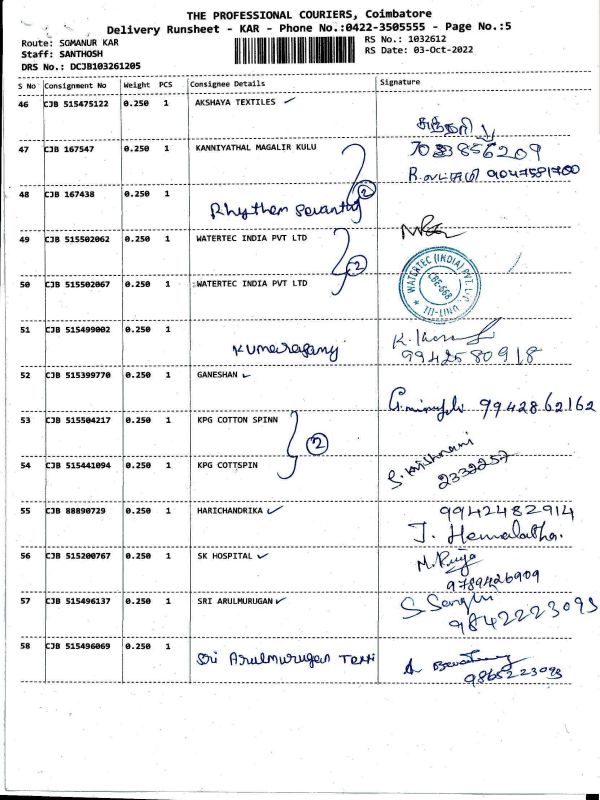 THE PROFESSIONAL COURIERS, Coimbatore
Delivery Runsheet - KAR - Phone No.:0422-3505555 - Page No.:5
Route: SOMANUR KAR
RS No.: 1032612
Staff: SANTHOSH
RS Date: 03-Oct-2022
DRS No.: DCJB103261205
S No Consignment No Weight PCS Consignee Details Signature
46 CJB 515475122 0.250 1 AKSHAYA TEXTILES ✓
47 CJB 167547 0.250 1 KANNIYATHAL MAGALIR KULU
9047581700
48 CJB 167438 0.250 1
2
Rhythem
49 CJB 515502062 0.250 1 WATERTEC INDIA PVT LTD
2
WATERTEC (INDIA) PVT. LTD. CBE-668 UNIT-III
50 CJB 515502067 0.250 1 WATERTEC INDIA PVT LTD
51 CJB 515499002 0.250 1
9942580918
52 CJB 515399770 0.250 1 GANESHAN ✓
9942862162
53 CJB 515504217 0.250 1 KPG COTTON SPINN
2
54 CJB 515441094 0.250 1 KPG COTTSPIN
S. Krishnani
2332257
55 CJB 88890729 0.250 1 HARICHANDRIKA ✓ 9942482914
J. Hemalatha.
56 CJB 515200767 0.250 1 SK HOSPITAL ✓
9789426909
57 CJB 515496137 0.250 1 SRI ARULMURUGAN ✓
9842223093
58 CJB 515496069 0.250 1
Sri Arulmurugan Texti
9865223093